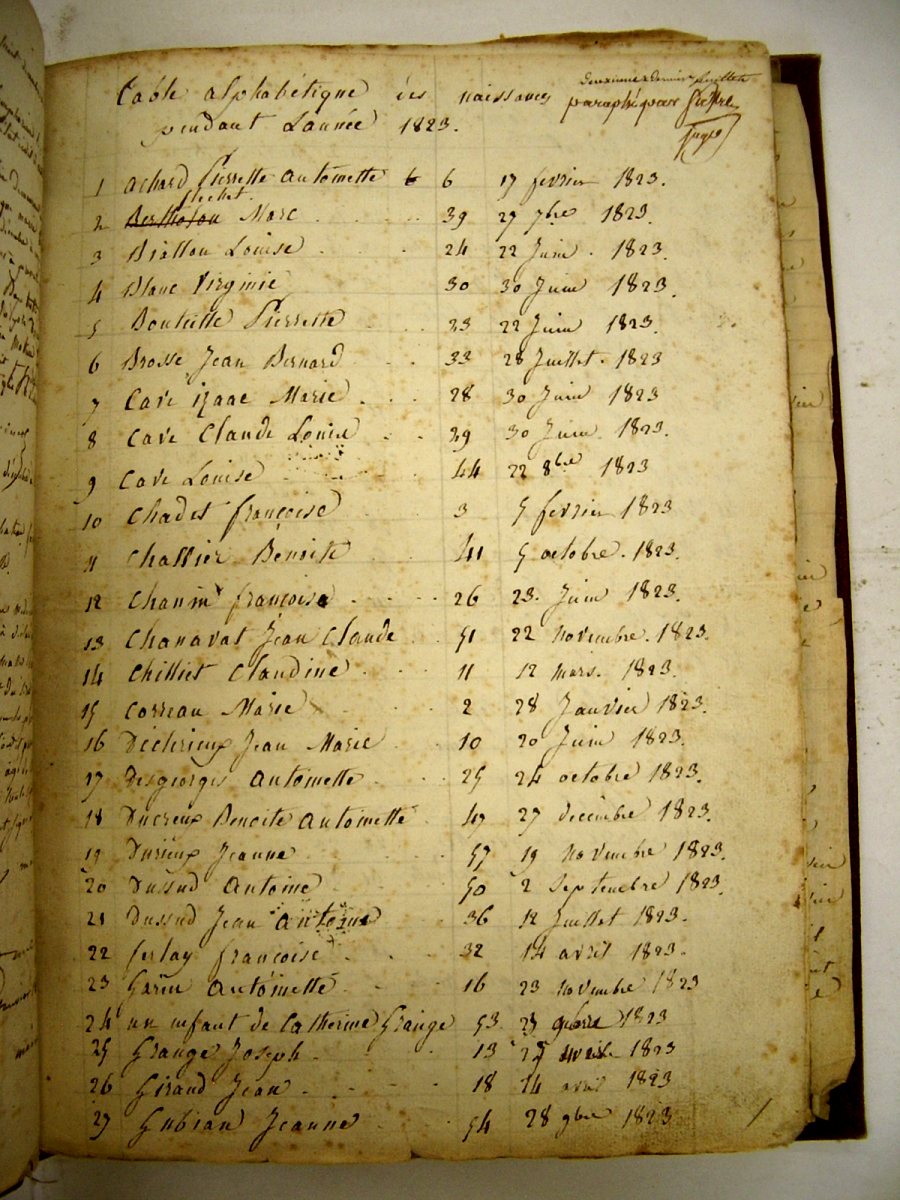 Table alphabétique des naissances
pendant L'année 1823.
paraphé par
juge
1 Achard Pierrette Antoinette 6 6 17 fevrier 1823.
flechet
2 Bertholon Marc 39 27 7bre 1823.
3 Biallon Louise 24 22 Juin 1823.
4 Blanc Virginie 30 30 Juin 1823.
5 Bouteille Pierrette 23 22 Juin 1823.
6 Brosse Jean Bernard 33 28 Juillet 1823
7 Cave izaac Marie 28 30 Juin 1823
8 Cave Claude Louis 29 30 Juin 1823.
9 Cave Louise 44 22 8bre 1823
10 Chadet françoise 3 5 fevrier 1823
11 Challier Benoite 41 5 octobre. 1823.
12 françoise 26 23. Juin 1823.
13 Chanavat Jean Claude 51 22 Novembre. 1823.
14 Chilliet Claudine 11 12 Mars. 1823.
15 Correau Marie 2 28 Janvier 1823.
16 Dechrieux Jean Marie 10 20 Juin 1823.
17 Desgeorges Antoinette 25 24 octobre 1823.
18 Ducreux Benoite Antoinette 47 27 decembre 1823.
19 Durieux Jeanne 57 19 Novembre 1823.
20 Dussud Antoine 50 2 Septembre 1823.
21 Dussud Jean Antoine 36 12 Juillet 1823.
22 ferlay françoise 32 14 avril 1823.
23 Garin Antoinette 16 23 Novembre 1823
24 un enfant de Catherine Grange 53 23 1823
25 Grange Joseph 13 1823
26 Giraud Jean 18 14 avril 1823
27 Gubian Jeanne 54 28 9bre 1823